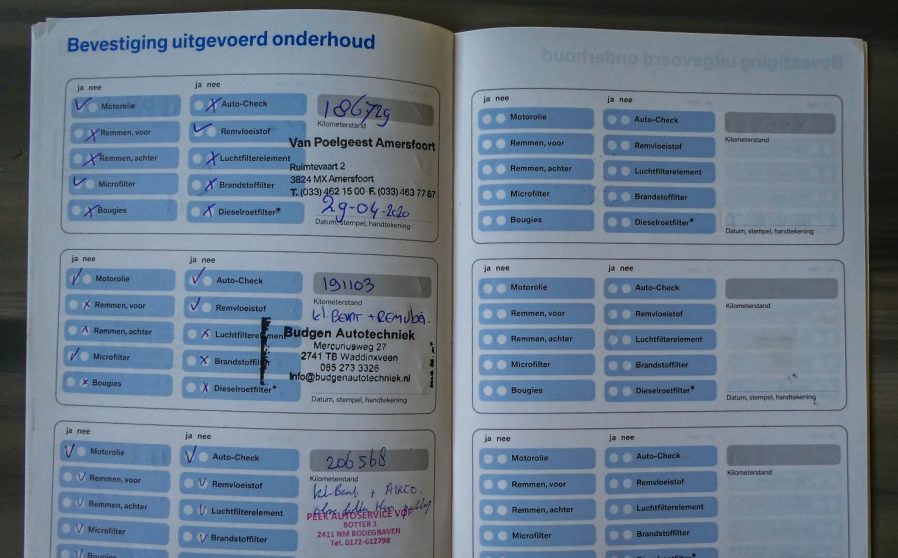 Bevestiging uitgevoerd onderhoud
ja nee
ja nee
Motorolie
Auto-Check
186729
Kilometerstand
Remmen, voor
Remvloeistof
Van Poelgeest Amersfoort
Remmen, achter
Luchtfilterelement
Ruimtevaart 2
3824 MX Amersfoort
Microfilter
Brandstoffilter
T. (033) 462 15 00 F. (033) 463 77 87
29-04-2020
Bougies
Dieselroetfilter*
Datum, stempel, handtekening
ja nee
ja nee
Motorolie
Auto-Check
191103
Kilometerstand
Remmen, voor
Remvloeistof
kl. Beurt +
Remmen, achter
Luchtfilterelement
Budgen Autotechniek
Mercuriusweg 27
Microfilter
Brandstoffilter
2741 TB Waddinxveen
085 273 3326
Bougies
Dieselroetfilter*
Info@budgenautotechniek.nl
Datum, stempel, handtekening
ja nee
ja nee
Motorolie
Auto-Check
206568
Kilometerstand
Remmen, voor
Remvloeistof
kl. Beurt + AIRCO.
Remmen, achter
Luchtfilterelement
PEEK AUTOSERVICE VOF
BOTTER 1
Microfilter
Brandstoffilter
2411 NM BODEGRAVEN
Tel. 0172-612798
Bougies
ja nee
ja nee
Motorolie
Auto-Check
Kilometerstand
Remmen, voor
Remvloeistof
Remmen, achter
Luchtfilterelement
Microfilter
Brandstoffilter
Bougies
Dieselroetfilter*
Datum, stempel, handtekening
ja nee
ja nee
Motorolie
Auto-Check
Kilometerstand
Remmen, voor
Remvloeistof
Remmen, achter
Luchtfilterelement
Microfilter
Brandstoffilter
Bougies
Dieselroetfilter*
Datum, stempel, handtekening
ja nee
ja nee
Motorolie
Auto-Check
Kilometerstand
Remmen, voor
Remvloeistof
Remmen, achter
Luchtfilterelement
Microfilter
Brandstoffilter